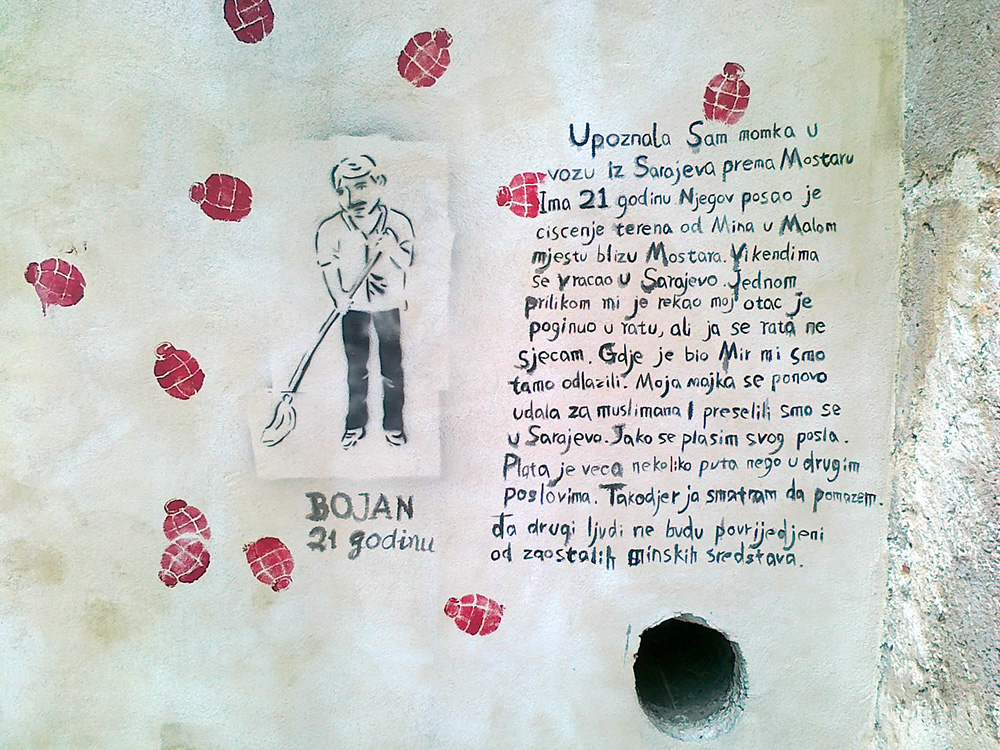 Upoznala Sam momka u
vozu iz Sarajeva prema Mostaru
Ima 21 godinu Njegov posao je
ciscenje terena od Mina u Malom
mjestu blizu Mostara. Vikendima
se vracao u Sarajevo. Jednom
prilikom mi je rekao moj otac je
poginuo u ratu, ali ja se rata ne
sjecam. Gdje je bio Mir mi smo
tamo odlazili. Moja majka se ponovo
udala za muslimana I preselili smo se
u Sarajevo. Jako se plasim svog posla.
Plata je veca nekoliko puta nego u drugim
poslovima. Takodjer ja smatram da pomazem.
da drugi ljudi ne budu povrijedjeni
od zaostalih minskih sredstava.
BOJAN
21 godinu